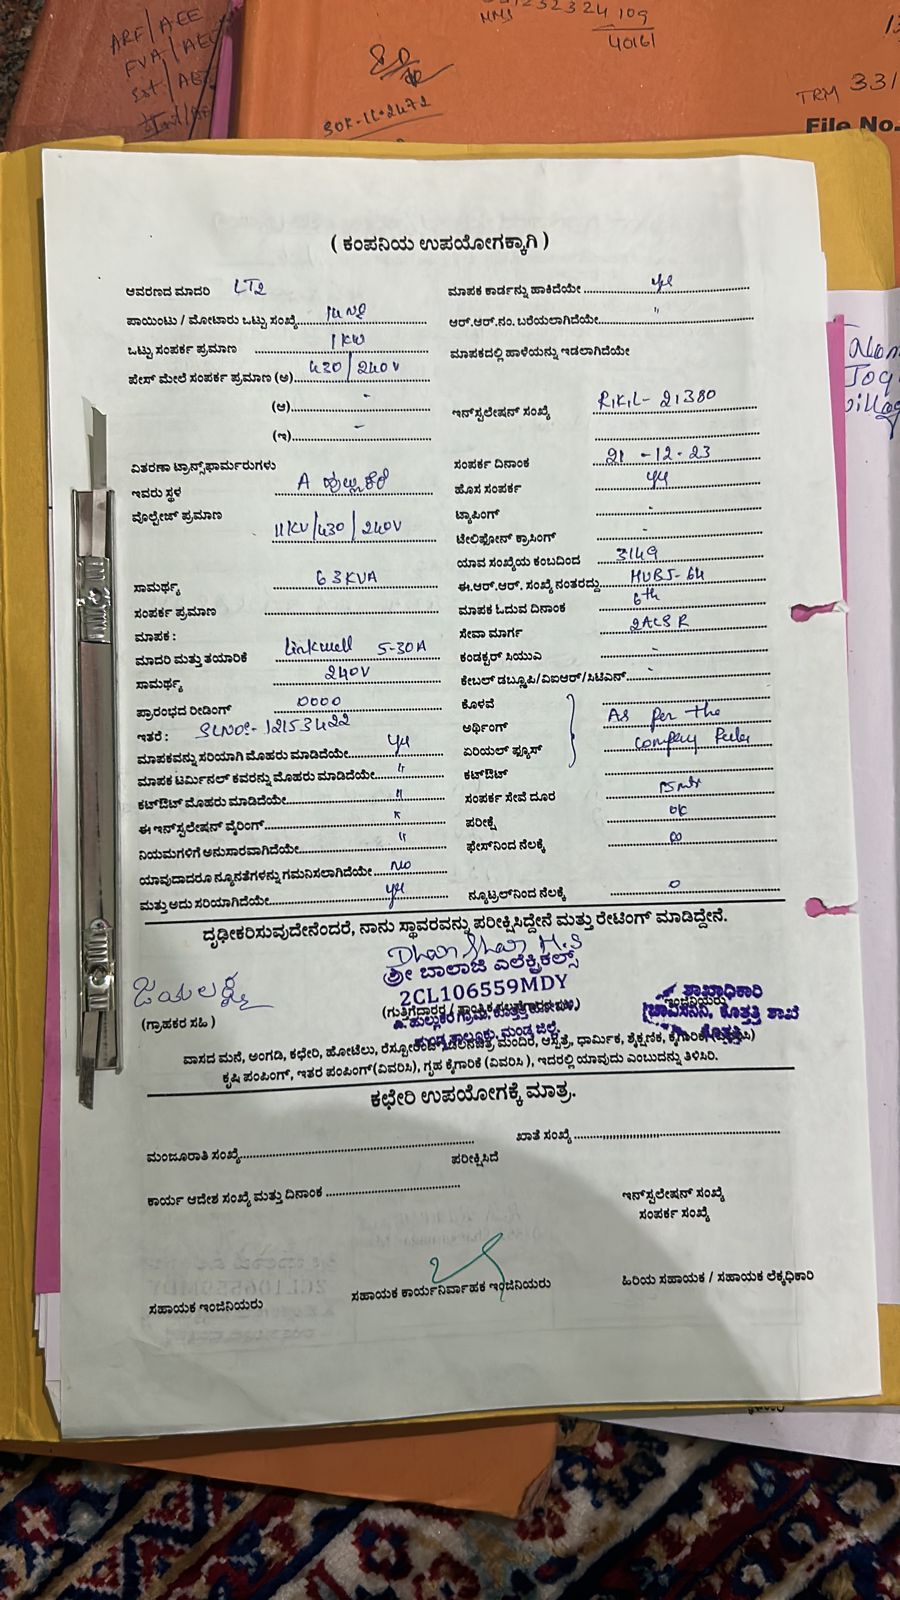 ARF/AEE
FVA/AEE
232324 109
40161
SOK-11-2472
TRM 331
File No.
( ಕಂಪನಿಯ ಉಪಯೋಗಕ್ಕಾಗಿ )
ಆವರಣದ ಮಾದರಿ LT2 ಮಾಪಕ ಕಾರ್ಡನ್ನು ಹಾಕಿದೆಯೇ yes
ಪಾಯಿಂಟು / ಮೋಟಾರು ಒಟ್ಟು ಸಂಖ್ಯೆ ಆರ್.ಆರ್.ನಂ. ಬರೆಯಲಾಗಿದೆಯೇ "
ಒಟ್ಟು ಸಂಪರ್ಕ ಪ್ರಮಾಣ 1 KW ಮಾಪಕದಲ್ಲಿ ಹಾಳೆಯನ್ನು ಇಡಲಾಗಿದೆಯೇ
ಪೇಸ್ ಮೇಲೆ ಸಂಪರ್ಕ ಪ್ರಮಾಣ (ಅ) 430/240V
(ಆ) - ಇನ್‌ಸ್ಟಲೇಷನ್ ಸಂಖ್ಯೆ R.K.L- 21380
(ಇ) -
ವಿತರಣಾ ಟ್ರಾನ್ಸ್‌ಫಾರ್ಮರುಗಳು ಸಂಪರ್ಕ ದಿನಾಂಕ 21-12-23
ಇವರು ಸ್ಥಳ A ಹುಲ್ಲುಕೆರೆ ಹೊಸ ಸಂಪರ್ಕ yes
ವೊಲ್ಟೇಜ್ ಪ್ರಮಾಣ 11KV/430/240V ಟ್ಯಾಪಿಂಗ್ -
ಟೆಲಿಫೋನ್ ಕ್ರಾಸಿಂಗ್ -
ಯಾವ ಸಂಖ್ಯೆಯ ಕಂಬದಿಂದ 3149
ಸಾಮರ್ಥ್ಯ 63KVA ಈ.ಆರ್.ಆರ್. ಸಂಖ್ಯೆ ನಂತರದ್ದು HUBJ-64
ಸಂಪರ್ಕ ಪ್ರಮಾಣ ಮಾಪಕ ಓದುವ ದಿನಾಂಕ 6th
ಮಾಪಕ : ಸೇವಾ ಮಾರ್ಗ 2ACSR
ಮಾದರಿ ಮತ್ತು ತಯಾರಿಕೆ Linkwell 5-30A ಕಂಡಕ್ಟರ್ ಸಿಯುಎ -
ಸಾಮರ್ಥ್ಯ 240V ಕೇಬಲ್ ಡಬ್ಲೂಪಿ/ವಿಐಆರ್/ಸಿಟಿಎಸ್ -
ಪ್ರಾರಂಭದ ರೀಡಿಂಗ್ 0000 ಕೊಳವೆ
ಇತರೆ : SLNO:-12153422 ಅರ್ಥಿಂಗ್ As per the
ಮಾಪಕವನ್ನು ಸರಿಯಾಗಿ ಮೊಹರು ಮಾಡಿದೆಯೇ yes ಏರಿಯಲ್ ಫ್ಯೂಸ್ company Rules
ಮಾಪಕ ಟರ್ಮಿನಲ್ ಕವರನ್ನು ಮೊಹರು ಮಾಡಿದೆಯೇ " ಕಟ್‌ಔಟ್
ಕಟ್‌ಔಟ್ ಮೊಹರು ಮಾಡಿದೆಯೇ " ಸಂಪರ್ಕ ಸೇವೆ ದೂರ
ಈ ಇನ್‌ಸ್ಟಲೇಷನ್ ವೈರಿಂಗ್ ಪರೀಕ್ಷೆ OK
ನಿಯಮಗಳಿಗೆ ಅನುಸಾರವಾಗಿದೆಯೇ " ಫೇಸ್‌ನಿಂದ ನೆಲಕ್ಕೆ ∞
ಯಾವುದಾದರೂ ನ್ಯೂನತೆಗಳನ್ನು ಗಮನಿಸಲಾಗಿದೆಯೇ NO
ಮತ್ತು ಅದು ಸರಿಯಾಗಿದೆಯೇ yes ನ್ಯೂಟ್ರಲ್‌ನಿಂದ ನೆಲಕ್ಕೆ 0
ದೃಢೀಕರಿಸುವುದೇನೆಂದರೆ, ನಾನು ಸ್ಥಾವರವನ್ನು ಪರೀಕ್ಷಿಸಿದ್ದೇನೆ ಮತ್ತು ರೇಟಿಂಗ್ ಮಾಡಿದ್ದೇನೆ.
ಜಯಲಕ್ಷ್ಮಿ
ಶ್ರೀ ಬಾಲಾಜಿ ಎಲೆಕ್ಟ್ರಿಕಲ್ಸ್
2CL106559MDY
ಶಾಖಾಧಿಕಾರಿ
(ಗ್ರಾಹಕರ ಸಹಿ ) ಇಂಜಿನಿಯರು
ಮಂಡ್ಯ ತಾಲ್ಲೂಕು, ಮಂಡ್ಯ ಜಿಲ್ಲೆ.
ವಾಸದ ಮನೆ, ಅಂಗಡಿ, ಕಛೇರಿ, ಹೋಟೆಲು, ರೆಸ್ಟೋರೆಂಟ್ ಮಂದಿರ, ಆಸ್ಪತ್ರೆ, ಧಾರ್ಮಿಕ, ಶೈಕ್ಷಣಿಕ, ಕೈಗಾರಿಕೆ (ವಿವರಿಸಿ)
ಕೃಷಿ ಪಂಪಿಂಗ್, ಇತರ ಪಂಪಿಂಗ್ (ವಿವರಿಸಿ), ಗೃಹ ಕೈಗಾರಿಕೆ (ವಿವರಿಸಿ ), ಇದರಲ್ಲಿ ಯಾವುದು ಎಂಬುದನ್ನು ತಿಳಿಸಿರಿ.
ಕಛೇರಿ ಉಪಯೋಗಕ್ಕೆ ಮಾತ್ರ.
ಮಂಜೂರಾತಿ ಸಂಖ್ಯೆ ಖಾತೆ ಸಂಖ್ಯೆ
ಪರೀಕ್ಷಿಸಿದೆ
ಕಾರ್ಯ ಆದೇಶ ಸಂಖ್ಯೆ ಮತ್ತು ದಿನಾಂಕ ಇನ್‌ಸ್ಟಲೇಷನ್ ಸಂಖ್ಯೆ
ಸಂಪರ್ಕ ಸಂಖ್ಯೆ
ಸಹಾಯಕ ಇಂಜಿನಿಯರು ಸಹಾಯಕ ಕಾರ್ಯನಿರ್ವಾಹಕ ಇಂಜಿನಿಯರು ಹಿರಿಯ ಸಹಾಯಕ / ಸಹಾಯಕ ಲೆಕ್ಕಧಿಕಾರಿ